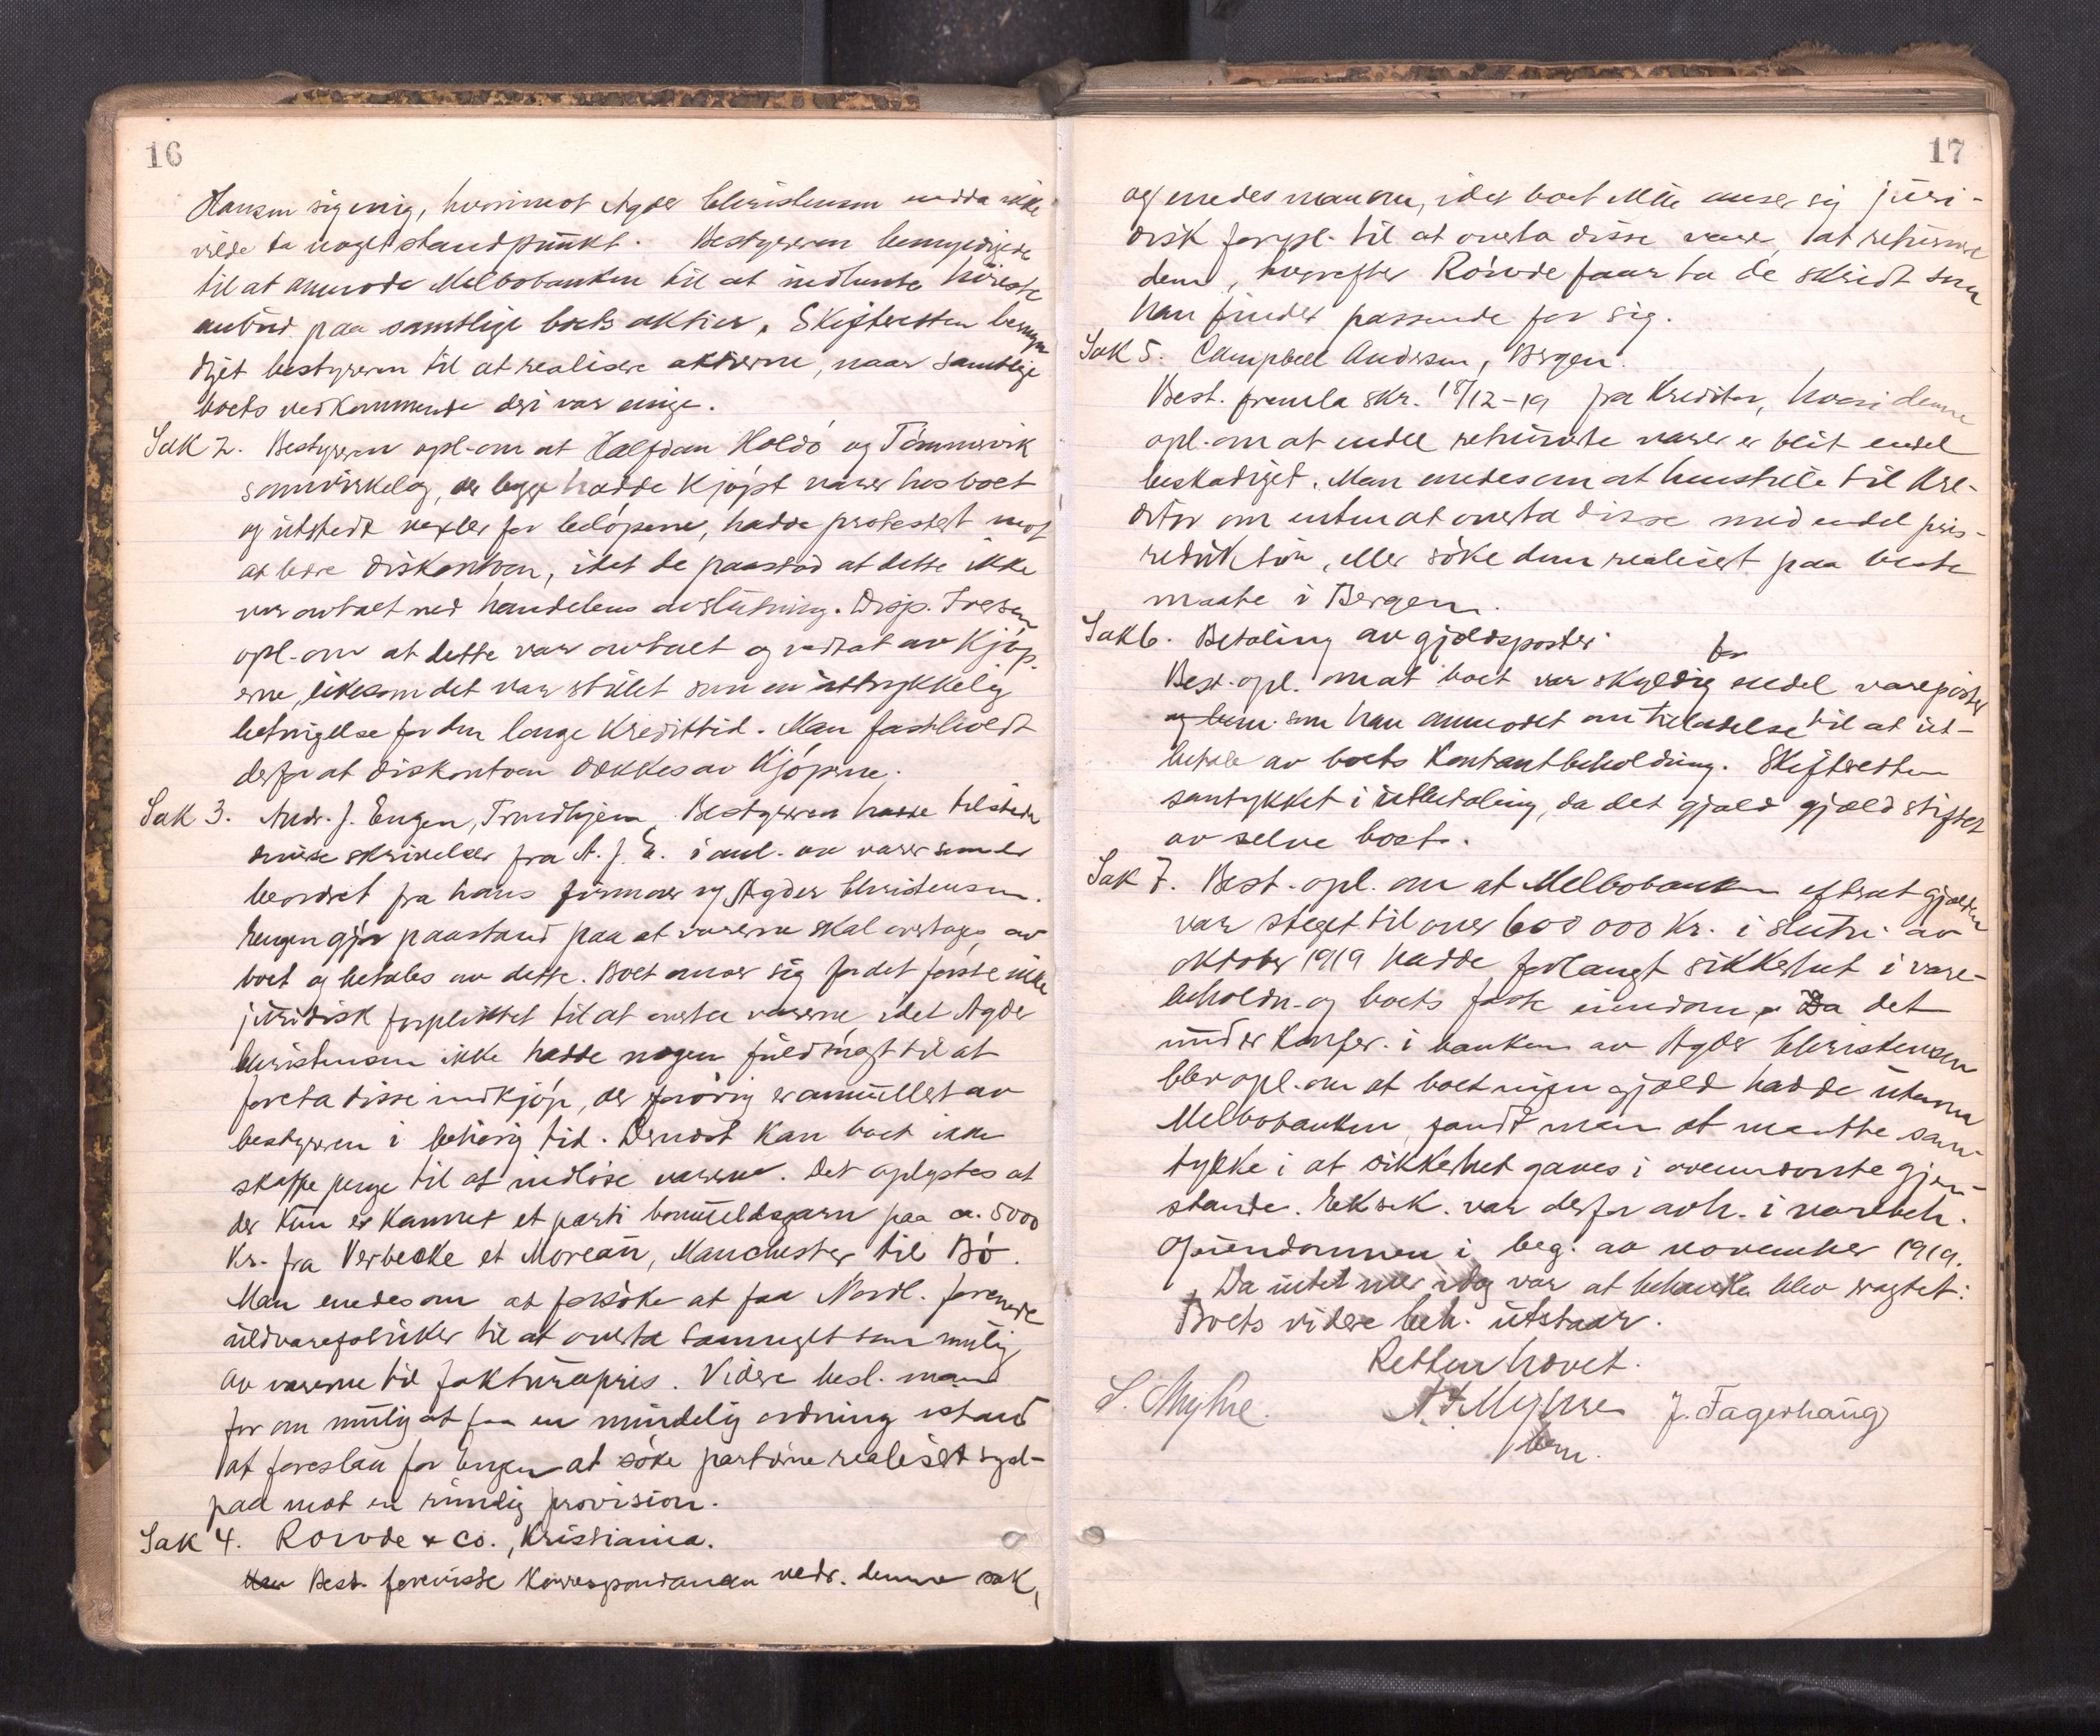 16
Hansen sig enig, hvorimot Agder Christensen endda ikke
vilde ta noget standpunkt. Bestyreren bemyndiges
til at anmode Melbobanken til at indhente høieste
anbud paa samtlige boets aktier. Skifteretten bemyn
diget bestyreren til at realisere aktierne, naar samtlige
boets vedkommende deri var enige.
Sak 2. Bestyreren opl. om at Halfdan Holdö og Tömmervik
samvirkelag, der begge hadde kjöpt varer hos boet
og utstedt vexler for belöpene, hadde protestert mot
at bære diskontoen, idet de paastod at dette ikke
var avtalt ved handelens avslutning. Disp. Iversen
opl. om at dette var avtalt og vedtat av kjöp
erne, likesom det var stillet som en uttrykkelig
betingelse for den lange kredittid. Man fastholdt
derfor at diskontoen dækkes av kjöperne.
Sak 3. Andr. J. Engen, Trondhjem. Bestyreren hadde tilstede
diverse skrivelser fra A. J. E. i anl. av varer som er
beordret fra hans firmaer og Agder Christensen.
Engen gjör paastand paa at varerne skal overtages av
boet og betales av dette. Boet anser sig for det förste ikke
juridisk forpliktet til at overta varerne, idet Agder
Christensen ikke hadde nogen fuldmagt til at
foreta disse indkjöp, der forövrig er annullert av
bestyreren i behörig tid. Dernæst kan boet ikke
skaffe penge til at indlöse varerne. Det oplystes at
der kun er kommet et parti bomuldsgarn paa ca. 5000
Kr. fra Verbecke et Moreau, Manchester til Bö.
Man enedes om at forsöke at faa Nordl. forenede
uldvarefabriker til at overta saameget som mulig
av varerne til fakturapris. Videre besl. man
for om mulig at faa en mindelig ordning istand
at foreslaa for Engen at söke partierne realisert syd-
paa mot en rimelig provision.
Sak 4. Rowde & Co., Kristiania.
Best. foreviste korrespondancen vedr. denne sak,
17
og enedes man om, idet boet ikke anser sig juri-
disk forpl. til at overta disse varer, at returnere
dem, hvorefter Rowde faar ta de skridt som
han finder passende for sig.
Sak 5. Campbell Andersen, Bergen.
Best. fremla skr. 18/12-19 fra kreditor, hvori denne
opl. om at endel returnerte varer er blit endel
beskadiget. Man enedes om at henstille til kre-
ditor om enten at overta disse med endel pris-
reduktion, eller söke dem realisert paa beste
maate i Bergen.
Sak 6. Betaling av gjældsposter.
Best. opl. om at boet var skyldig for endel vareposter
som han anmodet om tilladelse til at ut-
betale av boets kontantbeholdning. Skifteretten
samtykket i utbetaling, da det gjald gjæld stiftet
av selve boet.
Sak 7. Best. opl. om at Melbobanken efterat gjælden
var steget til over 600 000 Kr. i slutn. av
oktober 1919 hadde forlangt sikkerhet i vare-
beholdn. og boets faste eiendom. Da det
under konfer. i banken av Agder Christensen
blev opl. om at boet ingen gjæld hadde utenom
Melbobanken, fandt man at maatte sam-
tykke i at sikkerhet gaves i ovennævnte gjen-
stande. Eksek. var derfor avh. i varebeh.
og eiendommen i beg. av november 1919.
Da intet mer idag var at behandle blev vagtet:
Boets videre beh. utstaar.
Retten hævet.
S. Myhre. A. F. Myhre J. Fagerhaug